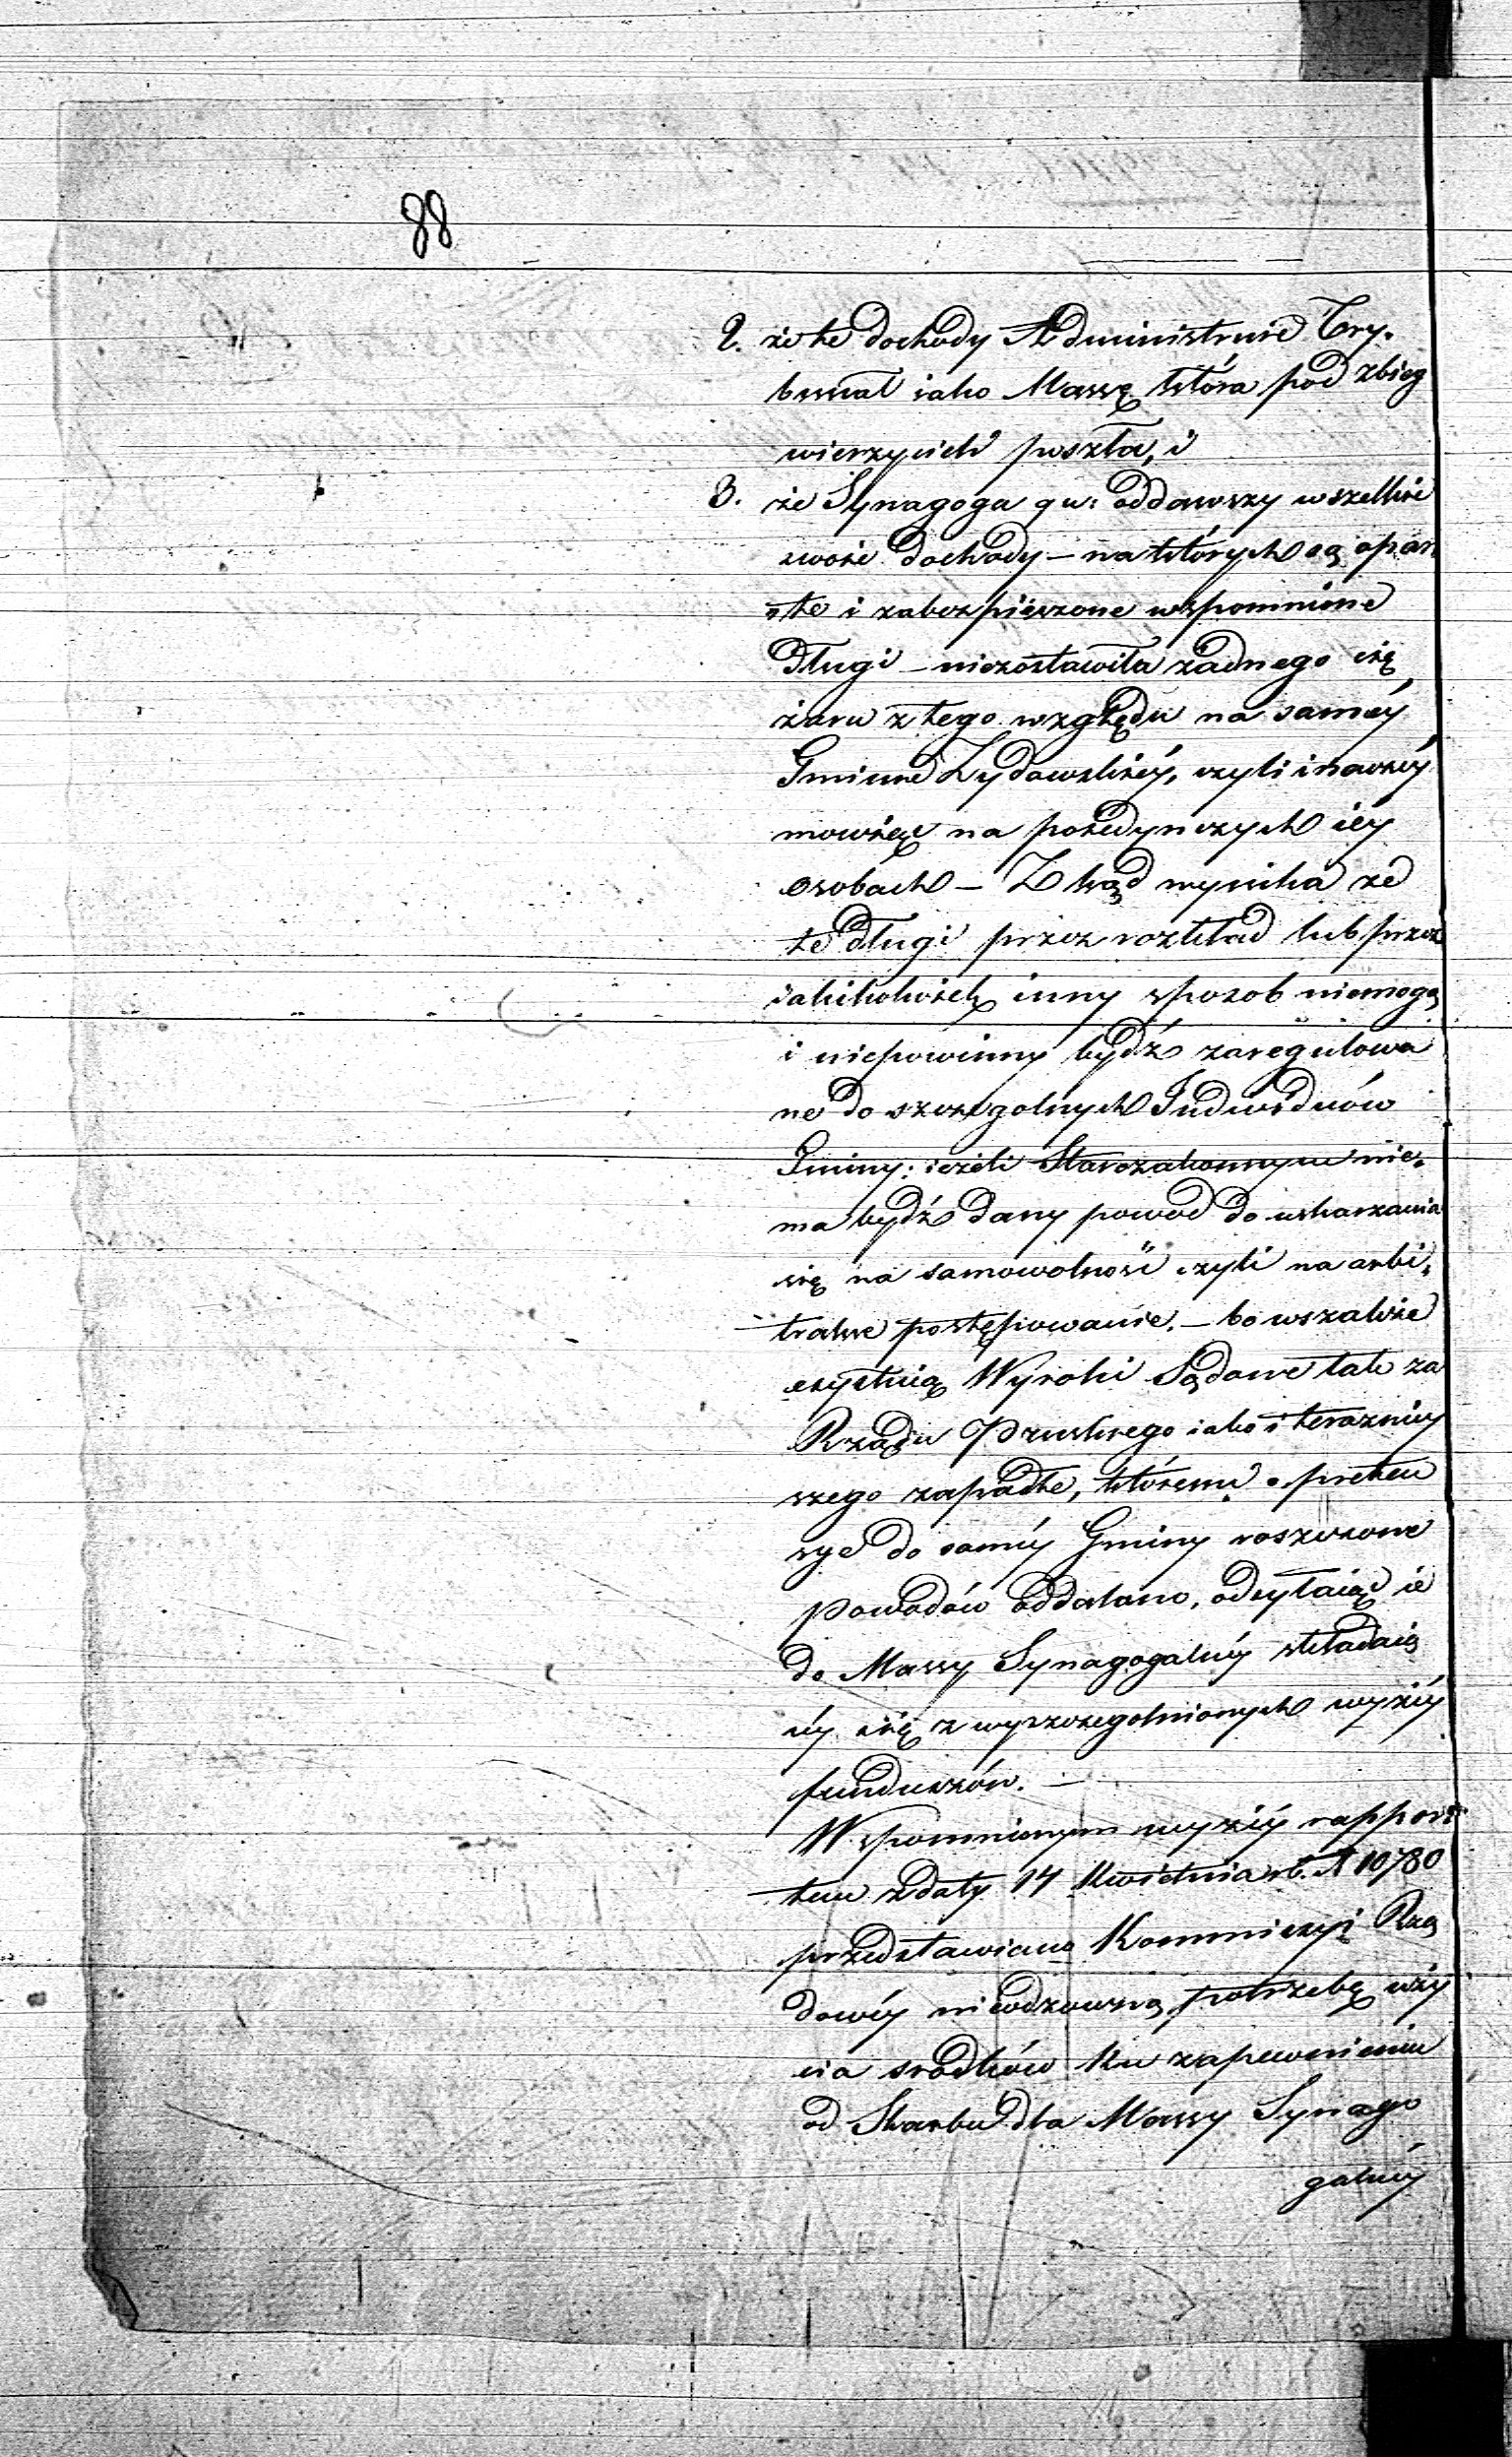 88
2. że te dochody Administruie Try-
bunał iako Massę która pod zbieg
wierzycieli poszła, i
3. że Synagoga qu: oddawszy wszelkie
swoie dochody – na których są opar
te i zabezpieczone wspomnione
Długi – niezostawiła żadnego cię
żaru z tego względu na saméy
Gminie Żydowskiéy, czyli inaczéy
mowiąc na poiedynczych iéy
osobach – Zkąd wynika że
te długi przez rozkład lub przez
iakikolwiek inny sposob niemogą
i niepowinny bydź zaregulowa
ne do szczegolnych Indywiduów
Gminy: ieżeli Starozakonnym nie-
ma bydź dany powod do uskarzania
się na samowolność czyli na arbi-
tralne postępowanie. – bo wszakże
exystuią Wyroki Sądowe tak za
Rządu Pruskiego iako i teraźniey
szego zapadłe, któremi o preten
sye do saméy Gminy roszczone
Powodów oddalono, odsyłaiąc ie
do Massy Synagogalnéy składaią
céy się z wyszczegolnionych wyżéy
funduszów. –
Wspomnionym wyżéy rappor
tem z daty 14 Kwietnia rb. N 10780
przedstawiono Kommissyi Rzą
dowéy nieodzowną potrzebę uży
cia srodków ku zapewnieniu
od Skarbu dla Massy Synago
galnéy